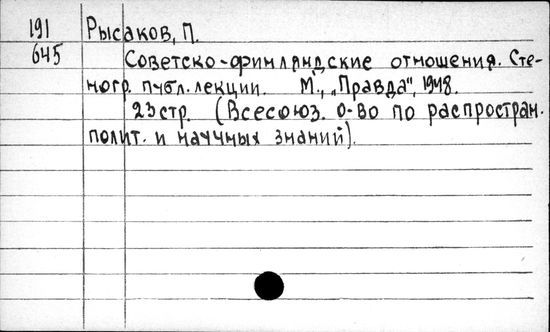 191 Рысаков, П.
645 Советско-финляндские отношения. Сте-
ногр. публ. лекции. М., „Правда", 1948.
23 стр. (Всесоюз. о-во по распростран.
полит. и научных знаний).